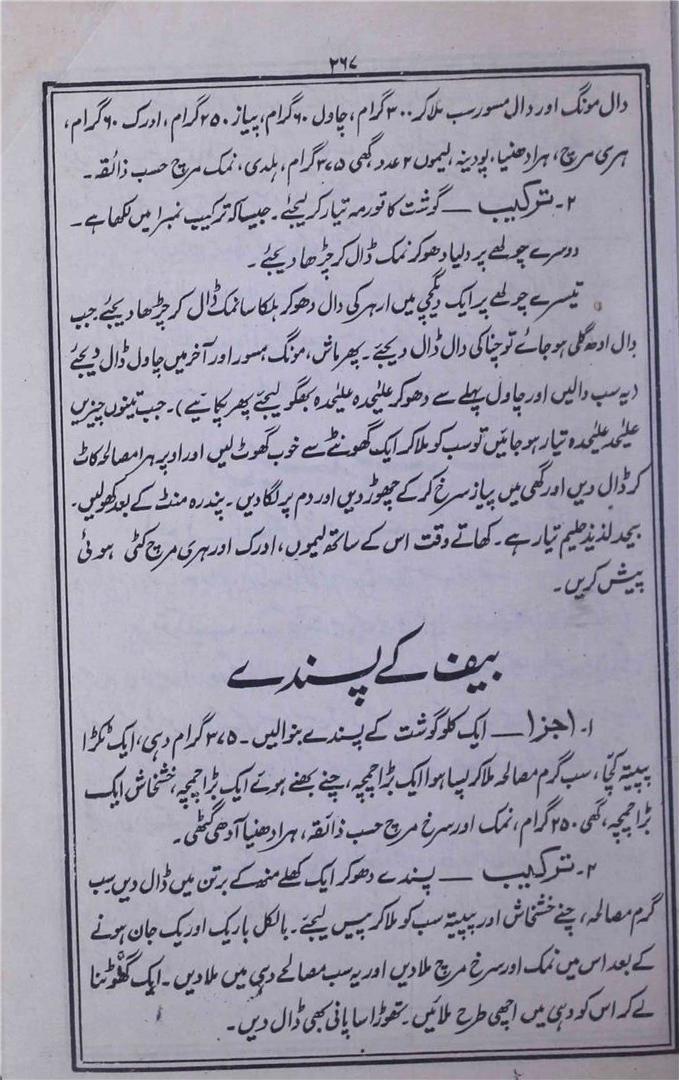 ۲۶۷
دال مونگ اور دال مسور سب ملا کر ۳۰۰ گرام، چاول ۶۰ گرام، پیاز ۲۵۰ گرام، ادرک ۶۰ گرام،
ہری مرچ، ہرا دھنیا، پودینہ، لیموں ۲ عدد گھی ۳۷۵ گرام، ہلدی، نمک مرچ حسب ذائقہ۔
۲۔ ترکیب — گوشت کا قورمہ تیار کر لیجئے۔ جیسا کہ ترکیب نمبر ۱ میں لکھا ہے۔
دوسرے چولھے پر دلیا دھو کر نمک ڈال کر چڑھا دیجئے۔
تیسرے چولھے پر ایک دیگچی میں ارہر کی دال دھو کر ہلکا سا نمک ڈال کر چڑھا دیجئے جب
دال ادھ گلی ہو جائے تو چنا کی دال ڈال دیجئے۔ پھر ماش، مونگ مسور اور آخر میں چاول ڈال دیجئے
(یہ سب دالیں اور چاول پہلے سے دھو کر علیٰحدہ علیٰحدہ بھگو لیجئے پھر پکائیے)۔ جب تینوں چیزیں
علیٰحدہ علیٰحدہ تیار ہو جائیں تو سب کو ملا کر ایک گھونٹے سے خوب گھوٹ لیں اور اوپر ہرا مصالحہ کاٹ
کر ڈال دیں اور گھی میں پیاز سرخ کر کے چھوڑ دیں اور دم پر لگا دیں۔ پندرہ منٹ کے بعد کھولیں۔
بیحد لذیذ حلیم تیار ہے۔ کھاتے وقت اس کے ساتھ لیموں، ادرک اور ہری مرچ کٹی ہوئی
پیش کریں۔
بیف کے پسندے
۱۔ اجزا — ایک کلو گوشت کے پسندے بنوالیں۔ ۳۷۵ گرام دہی، ایک ٹکڑا
پپیتہ کچا، سب گرم مصالحہ ملا کر پسا ہوا ایک بڑا چمچہ، چنے بھنے ہوئے ایک بڑا چمچہ، خشخاش ایک
بڑا چمچہ، گھی ۲۵۰ گرام، نمک اور سرخ مرچ حسب ذائقہ، ہرا دھنیا آدھی گٹھی۔
۲۔ ترکیب — پسندے دھو کر ایک کھلے منھ کے برتن میں ڈال دیں سب
گرم مصالحہ، چنے خشخاش اور پپیتہ سب کو ملا کر پیس لیجئے۔ بالکل باریک اور یک جان ہونے
کے بعد اس میں نمک اور سرخ مرچ ملا دیں اور یہ سب مصالحے دہی میں ملا دیں۔ ایک گھوٹنا
لے کر اس کو دہی میں اچھی طرح ملائیں۔ تھوڑا سا پانی بھی ڈال دیں۔